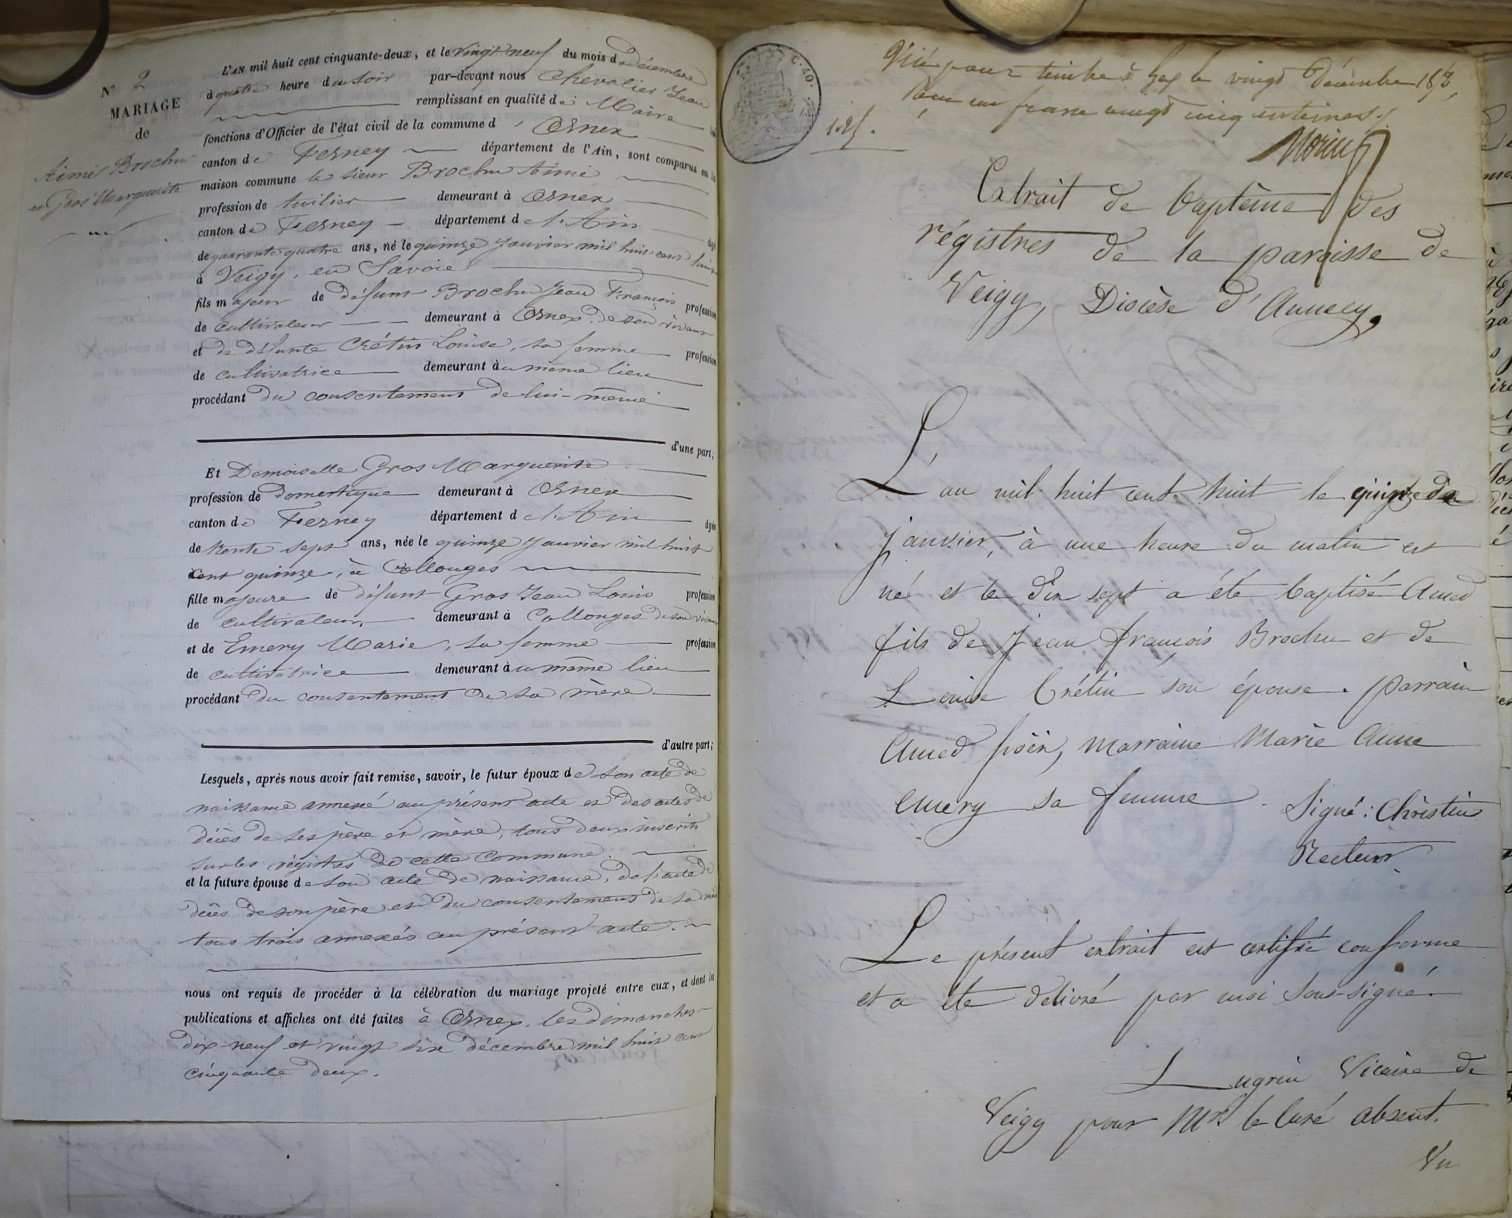 N° 2
MARIAGE
de
Aimé Brochu
et Gros Marguerite
L'AN mil huit cent cinquante-deux, et le vingt neuf du mois de décembre
à quatre heure du soir par-devant nous Chevalier Jean
remplissant en qualité de Maire
fonctions d'Officier de l'état civil de la commune d' Ornex
canton de Ferney département de l'Ain, sont comparus en la
maison commune le sieur Brochu Aimé
profession de tuilier demeurant à Ornex
canton de Ferney département de l'Ain âgé
de quarante quatre ans, né le quinze Janvier mil huit cent huit
à Veigy, en Savoie
fils majeur de défunt Brochu Jean François profession
de cultivateur demeurant à Ornex, de son vivant
et de défunte Crétin Louise, sa femme profession
de cultivatrice demeurant au même lieu
procédant du consentement de lui-même
d'une part;
Et Demoiselle Gros Marguerite
profession de domestique demeurant à Ornex
canton de Ferney département de l'Ain âgée
de trente sept ans, née le quinze Janvier mil huit
cent quinze, à Collonges
fille majeure de défunt Gros Jean Louis profession
de cultivateur, demeurant à Collonges de son vivant
et de Emery Marie, sa femme profession
de cultivatrice demeurant au même lieu
procédant du consentement de sa mère
d'autre part;
Lesquels, après nous avoir fait remise, savoir, le futur époux de son acte de
naissance annexé au présent acte et des actes de
décès de ses père et mère, tous deux inscrits
sur les régistres de cette Commune.
et la future épouse de son acte de naissance, de l'acte de
décès de son père et du consentement de sa mère
tous trois annexés au présent acte.
nous ont requis de procéder à la célébration du mariage projeté entre eux, et dont les
publications et affiches ont été faites à Ornex, les dimanches
dix-neuf et vingt six décembre mil huit cent
cinquante deux.
Visé pour timbre à Gex le vingt Décembre 1852,
reçu un franc vingt cinq centimes.
1.25.
Morin
Extrait de baptême des
régistres de la paroisse de
Veigy, Diocèse d'Annecy.
L'an mil huit cent huit le quinze de
janvier, à une heure du matin est
né et le dix sept a été baptisé Amed
fils de Jean François Brochu et de
Louise Crétin son épouse. parrain
Amed foëx, marraine Marie Anne
Emery sa femme. Signé: Christin
Recteur
Le présent extrait est certifié conforme
et a été delivré par moi sous-signé.
Lugrin Vicaire de
Veigy pour Mr le Curé absent.
Vu